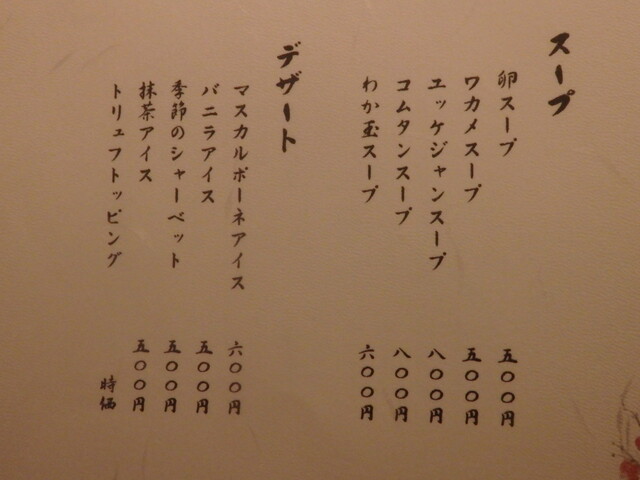 スープ
卵スープ 五〇〇円
ワカメスープ 五〇〇円
ユッケジャンスープ 八〇〇円
コムタンスープ 八〇〇円
わか玉スープ 六〇〇円
デザート
マスカルポーネアイス 六〇〇円
バニラアイス 五〇〇円
季節のシャーベット 五〇〇円
抹茶アイス 五〇〇円
トリュフトッピング 時価